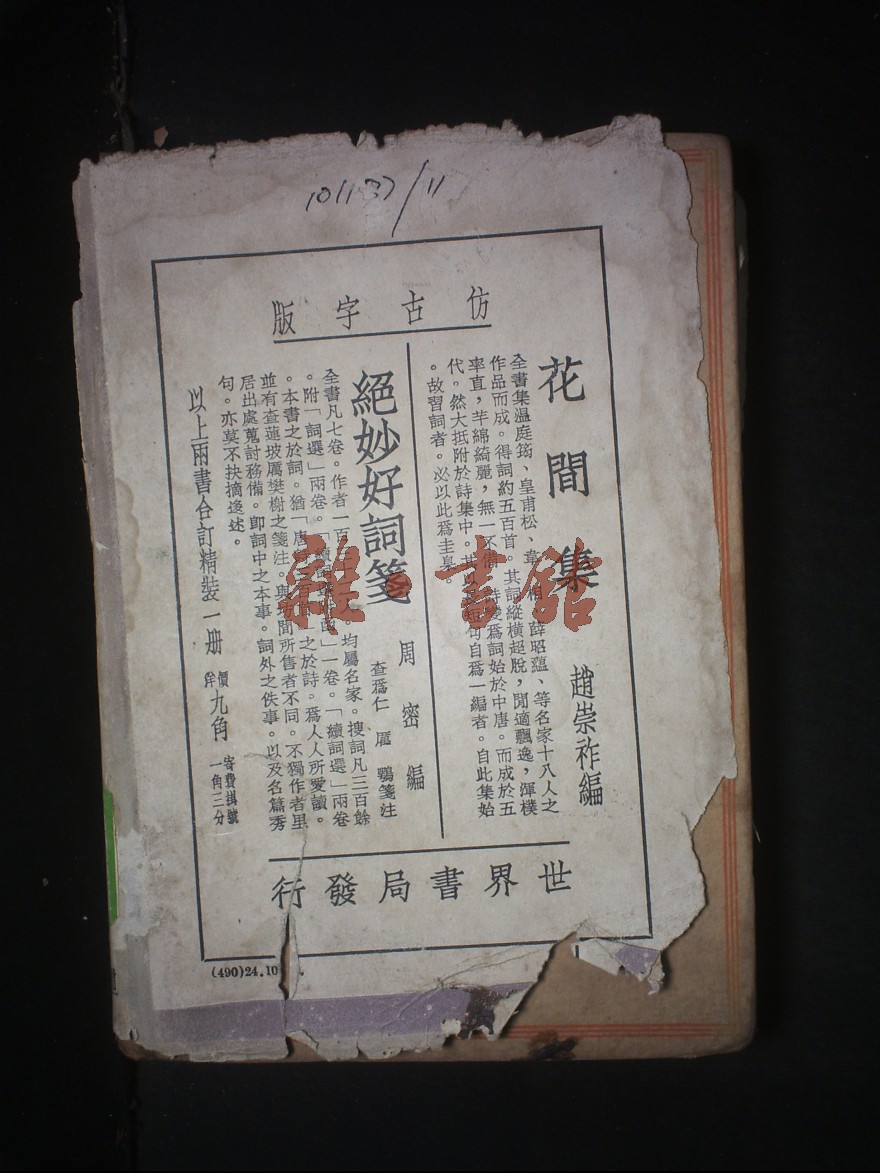 101137/11
仿古字版
花間集
趙崇祚編
全書集温庭筠、皇甫松、韋 薛昭蘊、等名家十八人之
作品而成。得詞約五百首。其詞縱橫超脫，閒適飄逸，渾樸
率直，芊綿綺麗，無一不備 詩變爲詞始於中唐。而成於五
代。然大抵附於詩集中。 自爲一編者。自此集始
。故習詞者。必以此爲圭臬。
絕妙好詞箋
周密編
查爲仁 厲鶚箋注
全書凡七卷。作者一百 均屬名家。搜詞凡三百餘
。附「詞選」兩卷。「續 」一卷。「續詞選」兩卷
。本書之於詞。猶「唐 之於詩。爲人人所愛讀。
並有查蓮坡厲樊榭之箋注。與坊間所售者不同。不獨作者里
居出處蒐討務備。卽詞中之本事。詞外之佚事。以及名篇秀
句。亦莫不抉摘迻述。
以上兩書合訂精裝一册
價洋九角
寄費掛號一角三分
世界書局發行
(490)24.10
雜·書館